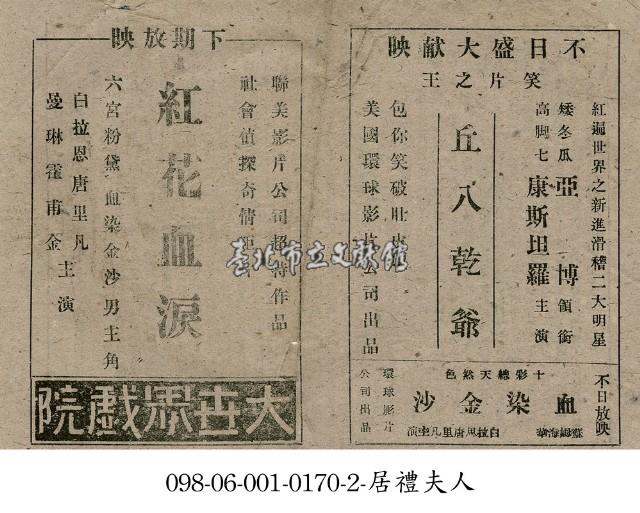 不日盛大献映
笑片之王
紅遍世界之新進滑稽二大明星
矮冬瓜 亞 博 領銜
高脚七 康斯坦羅 主演
丘八乾爺
包你笑破肚皮
美國環球影片公司出品
不日放映
十彩總天然色
血染金沙
白拉恩唐里凡主演
環球影片
公司出品
下期放映
聯美影片公司超特作品
社會偵探奇情
紅花血淚
六宮粉黛 血染金沙男主角
白拉恩唐里凡
曼琳霍甫金 主演
大世界戲院
臺北市立文獻館
098-06-001-0170-2-居禮夫人